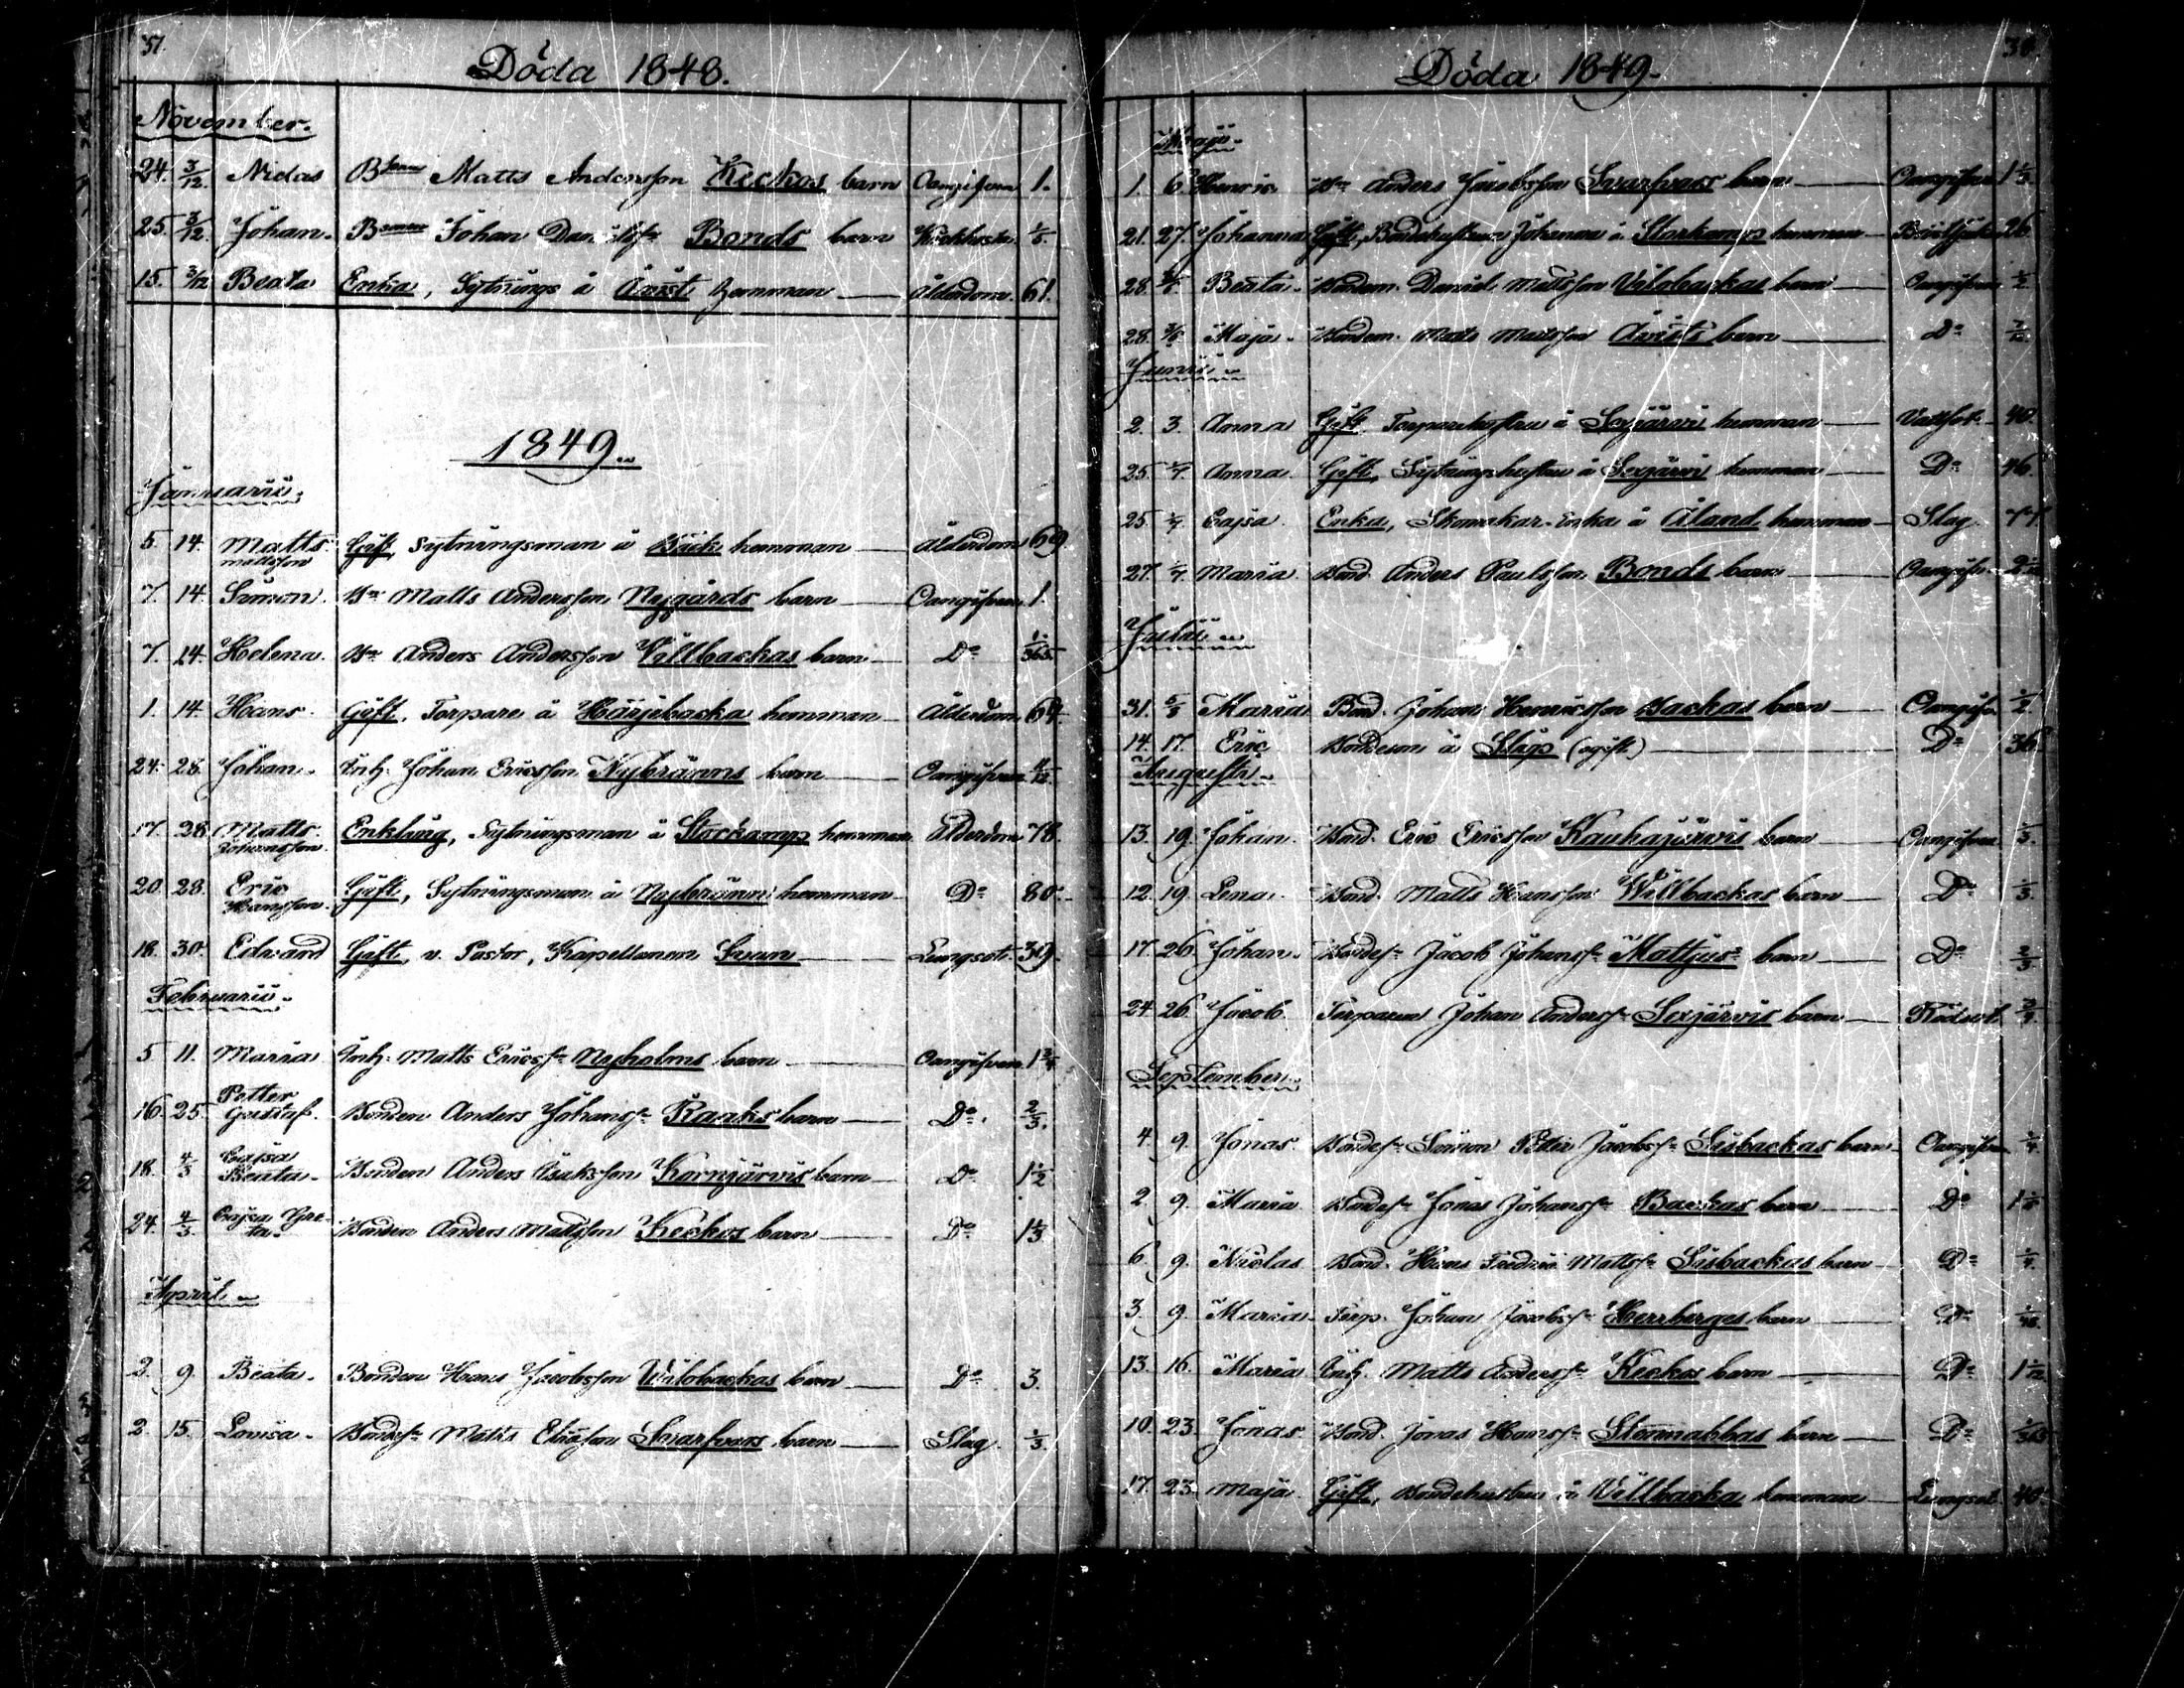 51.
Döda 1848.
November.
24. 3/12. Niclas Bsonen Matts Andersson Keckos barn Oangifven 1.
25. 3/12. Johan. Bsonen Johan Danielss. Bonds barn Kikhosta
15. 3/12 Beata Enka, Sytnings å Åivist hemman Ålderdom. 61.
1849.
Januarii.
5. 14. Matts Mattsson Gift, Sytningsman å Bäck hemman Ålderdom 69.
7. 14. Simon. Bn Matts Andersson Nygårds barn Oangifven 1.
7. 14. Helena. Bn Anders Andersson Villbackas barn Do 1/365.
1. 14. Hans. Gift, Torpare å Härjebacka hemman Ålderdom 64.
24. 28. Johan. Inh. Johan Ericsson Nybränns barn Oangifven 11/12.
17. 28. Matts Johansson. Enkling, Sytningsman å Storkamp hemman Ålderdom 78.
20. 28. Eric Hansson. Gift, Sytningsman å Nybränn hemman Do 80.
18. 30. Edvard Gift, v. Pastor, Kapellanen Lungsot 39.
Februarii.
5 11. Maria. Inh. Matts Ericss. Nyholms barn Oangifven 1 3/4
16. 25. Petter Gustaf. Bonden Anders Johanss. Raaks barn Do. 2/3.
18. 4/3 Cajsa Beata. Bonden Anders Isaksson Kornjärvis barn Do. 1 1/2
24. 4/3. Cajsa Greta. Bonden Anders Mattsson Keckos barn Do 1 1/3
April.
2. 9. Beata. Bonden Hans Jacobsson Wilobackas barn Do. 3.
2. 15. Lovisa. Bondes. Matts Eliasson Svarfvars barn Slag. 1/3
Döda 1849.
Maji.
1. 6. Henric. Bn Anders Jacobsson Svarfvars barn Oangifven 1 1/3
21. 27. Johanna Gift, Bondehustrun Johanna å Storkamp hemman 26
28. Beata. Bondem. Daniel Mattsson Vilobackas barn Oangifven 1/2
28. 3/6 Maja. Bondem. Matts Mattsson Åivists barn Do
Junii.
2. 3. Anna Gift Torparehustru å Sexjärvi hemman Vattsot 40.
25. 1/7. Anna. Gift, Sytningshustru å Sexjärvi hemman Do 46.
25. 1/7 Cajsa. Enka, Skomakar-Enka å Åland hemman Slag. 77.
27. 1/7 Maria. Bond. Anders Paulsson Bonds barn Oangifven
Julii.
31. 5/8 Maria Bond. Johan Henricsson Backas barn Oangifven 1/2
14. 17. Eric Bondeson å Slip (ogift) Do 36
Augusti.
13. 19. Johan. Bond. Eric Ericsson Kaukajärvis barn Oangifven
12. 19. Lena. Bond. Matts Hansson Willbackas barn Do 1/3.
17. 26. Johan. Bondes. Jacob Johanss. Mattjus barn Do 2/3
24. 26. Jacob. Torparen Johan Anderss. Sexjärvis barn Rödsot
September.
4. 9. Jonas. Bondes. Simon Petter Jacobss. Sisbackas barn Oangifven
2. 9. Maria. Bondes. Jonas Johanss. Backas barn Do
6. 9. Niclas Bond. Hans Fredric Mattss. Sisbackas barn Do
3. 9. Maria. Torp. Johan Jacobss. Herrberges barn Do
13. 16. Maria Inh. Matts Anderss. Keckos barn Do 1 1/12
10. 23. Jonas Bond. Jonas Hanss. Stormabbas barn Do 1/365
17. 23. Maja. Gift, Bondehustru å Villbacka hemman Lungsot 40